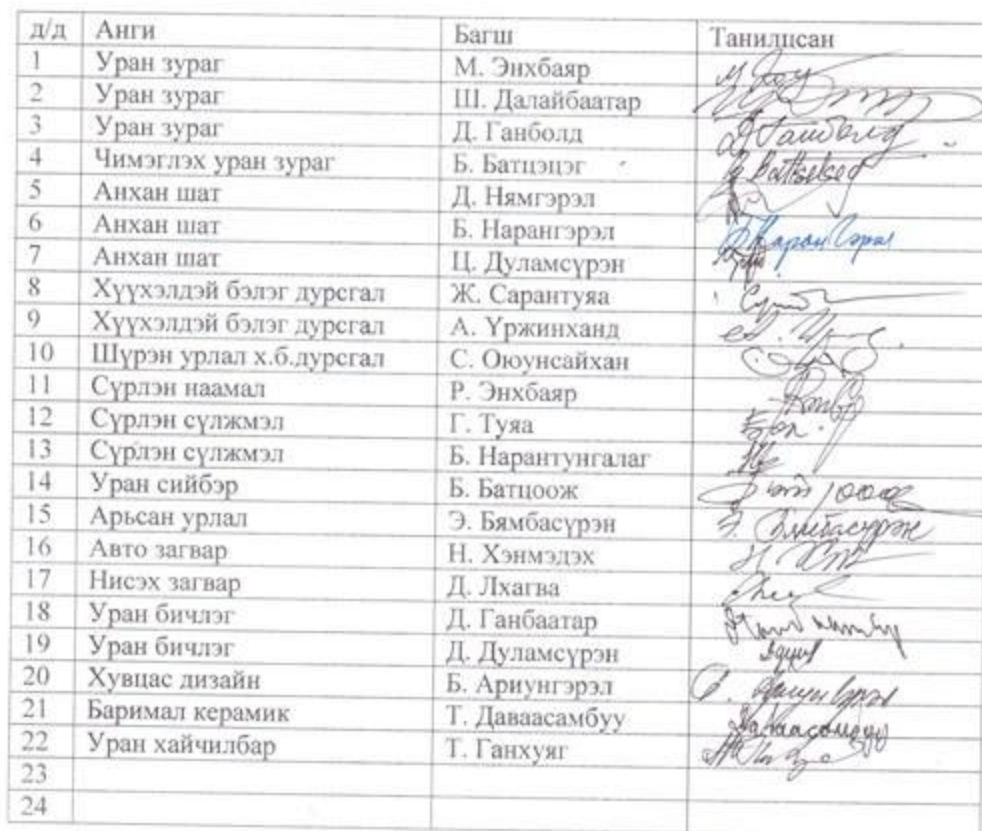 д/д Анги Багш Танилцсан
1 Уран зураг М. Энхбаяр
2 Уран зураг Ш. Далайбаатар
3 Уран зураг Д. Ганболд
4 Чимэглэх уран зураг Б. Батцэцэг
5 Анхан шат Д. Нямгэрэл
6 Анхан шат Б. Нарангэрэл
7 Анхан шат Ц. Дуламсүрэн
8 Хүүхэлдэй бэлэг дурсгал Ж. Сарантуяа
9 Хүүхэлдэй бэлэг дурсгал А. Үржинханд
10 Шүрэн урлал х.б.дурсгал С. Оюунсайхан
11 Сүрлэн наамал Р. Энхбаяр
12 Сүрлэн сүлжмэл Г. Туяа
13 Сүрлэн сүлжмэл Б. Нарантунгалаг
14 Уран сийбэр Б. Батцоож
15 Арьсан урлал Э. Бямбасүрэн
16 Авто загвар Н. Хэнмэдэх
17 Нисэх загвар Д. Лхагва
18 Уран бичлэг Д. Ганбаатар
19 Уран бичлэг Д. Дуламсүрэн
20 Хувцас дизайн Б. Ариунгэрэл
21 Баримал керамик Т. Даваасамбуу
22 Уран хайчилбар Т. Ганхуяг
23
24